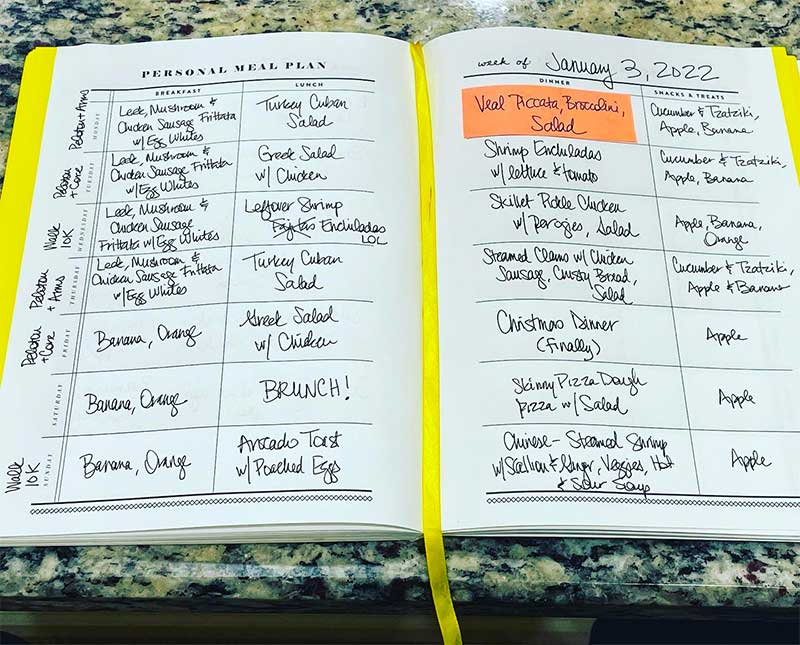 PERSONAL MEAL PLAN
BREAKFAST
LUNCH
Peloton + Arms
MONDAY
Leek, Mushroom &
Chicken Sausage Frittata
w/ Egg Whites
Turkey Cuban
Salad
Peloton
+ Core
TUESDAY
Leek, Mushroom &
Chicken Sausage Frittata
w/ Egg Whites
Greek Salad
w/ Chicken
Walk
10K
WEDNESDAY
Leek, Mushroom &
Chicken Sausage
Frittata w/ Egg Whites
Leftover Shrimp
Fajitas Enchiladas
LOL
Peloton
+ Arms
THURSDAY
Leek, Mushroom &
Chicken Sausage Frittata
w/ Egg Whites
Turkey Cuban
Salad
Peloton
+ Core
FRIDAY
Banana, Orange
Greek Salad
w/ Chicken
SATURDAY
Banana, Orange
BRUNCH!
Walk
10K
SUNDAY
Banana, Orange
Avocado Toast
w/ Poached Eggs
week of January 3, 2022
DINNER
SNACKS & TREATS
Veal Piccata, Broccolini,
Salad
Cucumber & Tzatziki,
Apple, Banana
Shrimp Enchiladas
w/ lettuce & tomato
Cucumber & Tzatziki,
Apple, Banana
Skillet Pickle Chicken
w/ Perogies, Salad
Apple, Banana,
Orange
Steamed Clams w/ Chicken
Sausage, Crusty Bread,
Salad
Cucumber & Tzatziki,
Apple & Banana
Christmas Dinner
(Finally)
Apple
Skinny Pizza Dough
pizza w/ Salad
Apple
Chinese - Steamed Shrimp
w/ Scallion & Ginger, Veggies, Hot
& Sour Soup
Apple